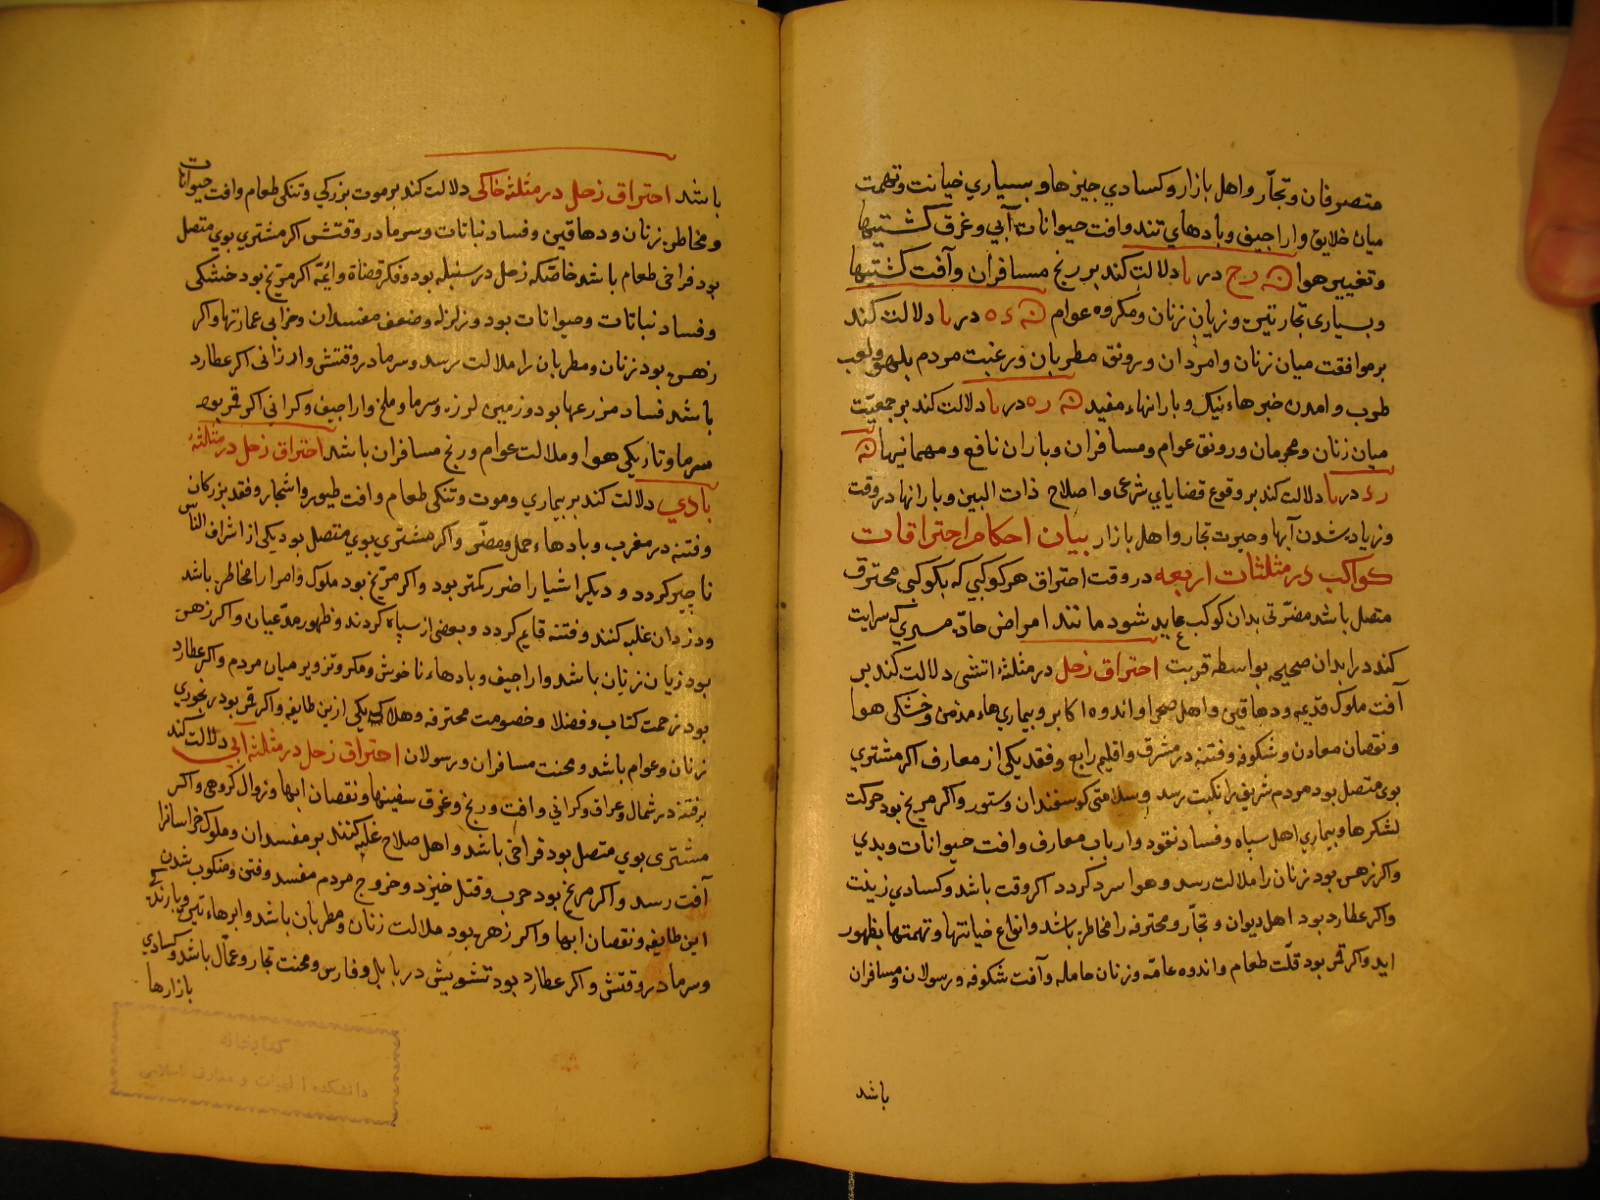 متصرفان و تجّار و اهل بازار و کسادي چیزها و بسیاري خیانت و تهمت
میان خلایق و اراجیف و بادهاي تند و افت حیوانات آبي و غرق کشتیها
و تغییر هوا دلالت کند بر رنج مسافران و آفت کشتیها
و بسیاری تجارتین و زیان زنان و مکروه عوام در با دلالت کند
بر موافقت میان زنان و امردان و رونق مطربان و رغبت مردم بلهو و لعب
طرب و امدن خبرهاء نیک و بارانهاء مفید ره در با دلالت کند بر جمعیّت
میان زنان و محرمان و رونق عوام و مسافران و باران نافع و مهمانیها
رء در با دلالت کند بر وقوع قضایاي شرعی و اصلاح ذات البین و بارانها در وقت
و زیاد شدن آبها و حیرت تجار و اهل بازار بیان احکام احتراقات
کواکب در مثلثات اربعه در وقت احتراق هر کوکبي که بکوکبي محترق
متصل باشد مضرّتی بدان کوکب عاید شود مانند امراض حادّه مسري که سرایت
کند در ابدان صحیحه بواسطه قربت احتراق زحل در مثلثهٔ اتشی دلالت کند بر
آفت ملوک قدیمه و دهاقین و اهل صحرا و اندوه اکابر و بیماري هاء مزمن و خشکی هوا
و نقصان معادن و شکوفه و فتنه در مشرق و اقلیم رابع و فقد یکی از معارف اکر مشتري
بوی متصل بود مردم شریف را نکبت رسد و سلامتی کوسفندان و ستور و اکر مریخ بود حرکت
لشکرها و بیماري اهل سپاه و فساد نقود و ارباب معارف و افت حیوانات و بدي
و اکر زهره بود زنان را ملالت رسد و هوا سرد کردد اکر وقت باشد و کسادي زینت
و اکر عطارد بود اهل دیوان و تجّار و محترفه را مخاطره باشد و انواع خیانتها و تهمتها بظهور
اید و اکر قمر بود قلّت طعام و اندوه عامّه و زنان حامله و آفت شکوفه و رسولان و مسافران
باشد
باشد احتراق زحل در مثلثهٔ خاکی دلالت کند بر موت بزرکي و تنکی طعام و افت حیوانات
و مخاطره زنان و دهاقین و فساد نباتات و سرما در وقتش اکر مشتري بوي متصل
بود فراخی طعام باشد خاصّکه زحل در سنبله بود و فکر قضاة و ائمّه اکر مرّیخ بود خشکی
و فساد نباتات و حیوانات بود و زلزله و ضعف مفسدان و خرابي عمارتها و اکر
زهره بود زنان و مطربان را ملالت رسد و سرما در وقتش و ارزانی اکر عطارد
باشد فساد مزرعها بود و زمین لرزه و سرما و ملخ و اراجیف و کرانی اکر قمر بود
سرما و تاریکي هوا و ملالت عوام و رنج مسافران باشد احتراق زحل در مثلثهٔ
بادي دلالت کند بر بیماري و موت و تنکی طعام و افت طیور و اشجار و فقد بزرکان
و فتنه در مغرب و بادهاء حمل و مضرّ و اکر مشتري بوي متصل بود یکی از اشراف الناس
ناچیز کردد و دیکر اشیا را ضرر کمتر بود و اکر مرّیخ بود ملوک و امرا را مخاطره باشد
و دزدان غلبه کنند و فتنه قایم کردد و بعضی از سپاه کردند و ظهور مدّعیان و اکر زهره
بود زیان زنان باشد و اراجیف و بادهاء ناخوش و مکر و تزویر میان مردم و اکر عطارد
بود زحمت کتاب و فضلا و خصومت محترفه و هلاک یکی ازین طایفه و اکر قمر بود رنجوري
زنان و عوام باشد و محنت مسافران و رسولان احتراق زحل در مثلثهٔ آبي دلالت کند
بر فتنه در شمال و عراق و کرانی و افت و رنج و غرق سفینها و نقصان ابها و زوال کروهی و اکر
مشتری بوي متصل بود فراخی باشد و اهل صلاح غلبه کنند بر مفسدان و ملوک خراسانرا
آفت رسد و اکر مریخ بود حرب و قتل خیزد و خروج مردم مفسد و فتن و منکوب شدن
این طایفه و نقصان ابها و اکر زهره بود ملالت زنان و مطربان باشد و ابرهاء
و سرما در وقتش و اکر عطارد بود تشویش در بابل و فارس و محنت تجار و عمّال باشد و کسادي
بازارها
کتابخانه
دانشکده الهیات و معارف اسلامی